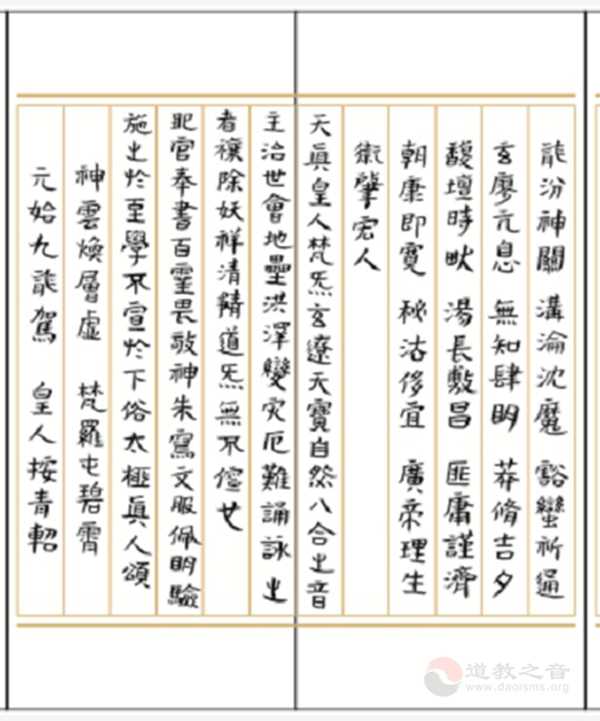 龍汾神關 溝淪沈魔 豁蠻祈逼
玄廖亢息 無知肆明 莽脩吉夕
馥壇時畎 湯長敷昌 匪庸謹濟
朝康即寬 秘沽侈宜 廣帝理生
衛肇宏人
天真皇人梵炁玄遼天寶自然八合之音
主治世會地壘洪澤變灾厄難誦詠之
者禳除妖祥清道炁無不
官奉書百靈畏敬神朱寫文服佩明驗
施之於至學不宣於下俗太極真人頌
神雲煥層虛 梵羅屯碧霄
元始九龍駕 皇人按青軺
道教之音
www.daoisms.org